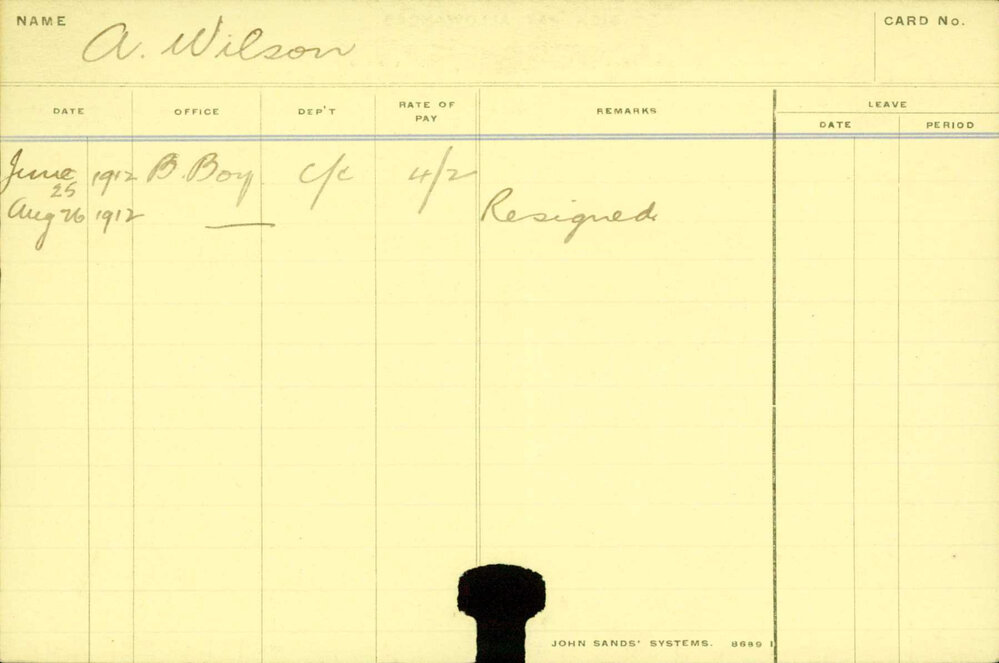 NAME A. Wilson CARD No.
DATE OFFICE DEP'T RATE OF PAY REMARKS LEAVE
DATE PERIOD
June 25 1912 B. Boy c/c 4/2
Aug 26 1912 — Resigned
JOHN SANDS' SYSTEMS. 8689